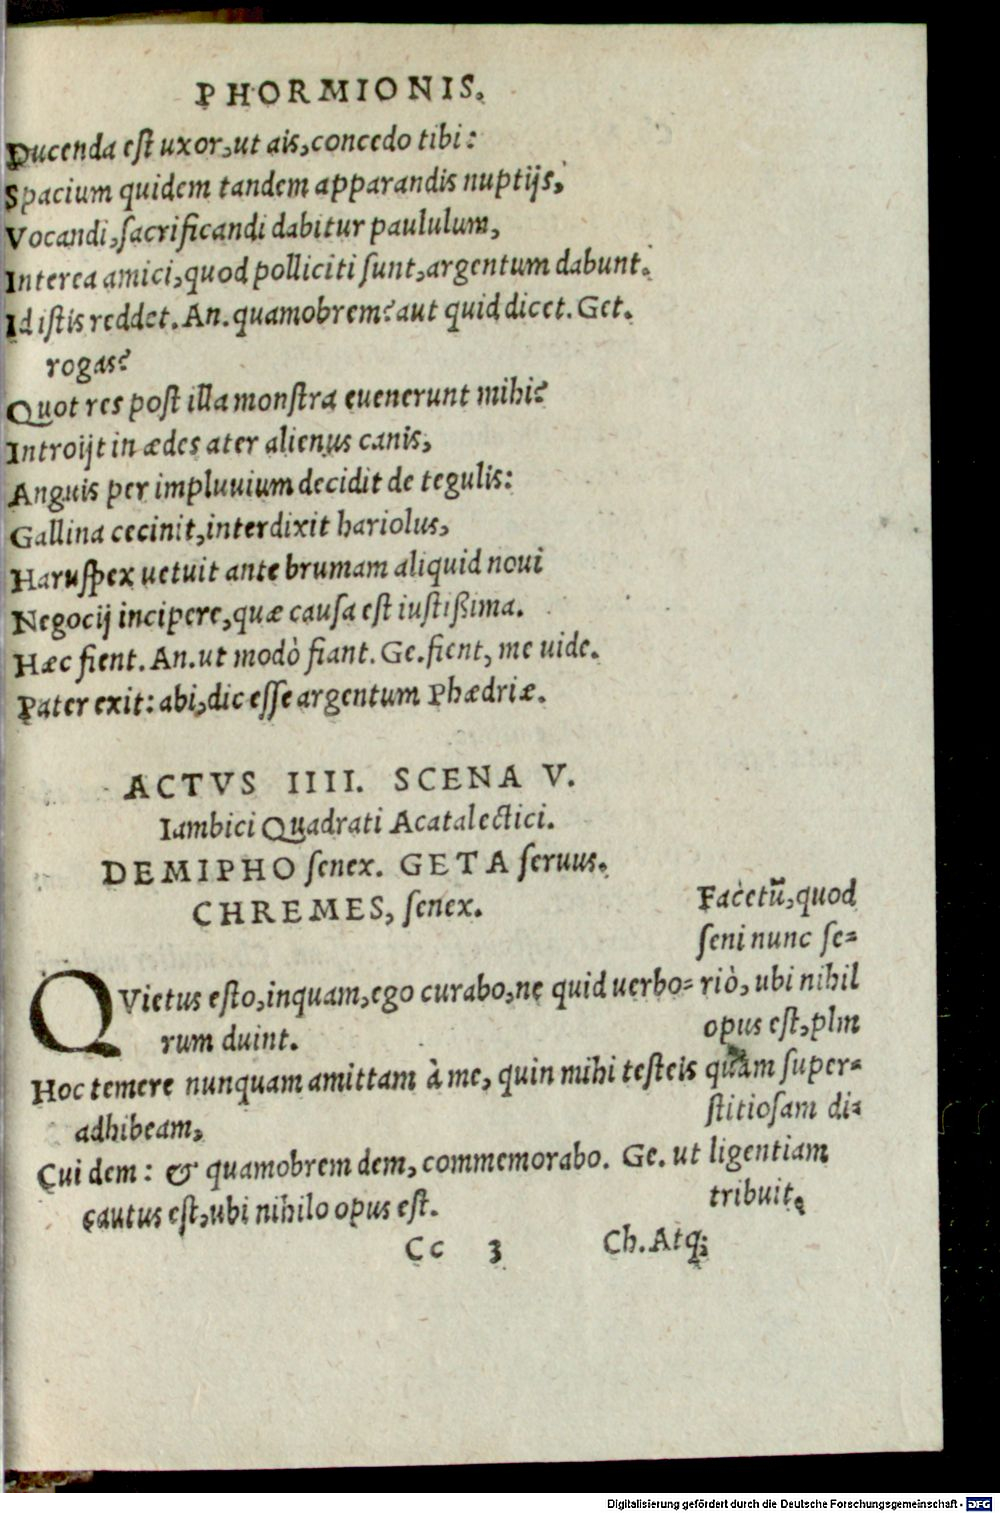 PHORMIONIS.
Ducenda eſt uxor, ut ais, concedo tibi:
Spacium quidem tandem apparandis nuptijs,
Vocandi, ſacrificandi dabitur paululum,
Interea amici, quod polliciti ſunt, argentum dabunt.
Id iſtis reddet. An. quamobrem? aut quid dicet. Get.
rogas?
Quot res poſt illa monſtra euenerunt mihi?
Introijt in ædes ater alienus canis,
Anguis per impluuium decidit de tegulis:
Gallina cecinit, interdixit hariolus,
Haruſpex uetuit ante brumam aliquid noui
Negocij incipere, quæ cauſa eſt iuſtißima.
Hæc fient. An. ut modò fiant. Ge. fient, me uide.
Pater exit: abi, dic eſſe argentum Phædriæ.
ACTVS IIII. SCENA V.
Iambici Quadrati Acatalectici.
DEMIPHO ſenex. GETA ſeruus.
CHREMES, ſenex.
QVietus eſto, inquam, ego curabo, ne quid uerbo=
rum duint.
Hoc temere nunquam amittam à me, quin mihi teſteis
adhibeam,
Cui dem: & quamobrem dem, commemorabo. Ge. ut
cautus eſt, ubi nihilo opus eſt.
Facetũ, quod
ſeni nunc ſe=
riò, ubi nihil
opus eſt, plm
quàm ſuper=
ſtitioſam di=
ligentiam
tribuit.
Cc 3 Ch. Atq;
Digitalisierung gefördert durch die Deutsche Forschungsgemeinschaft - DFG